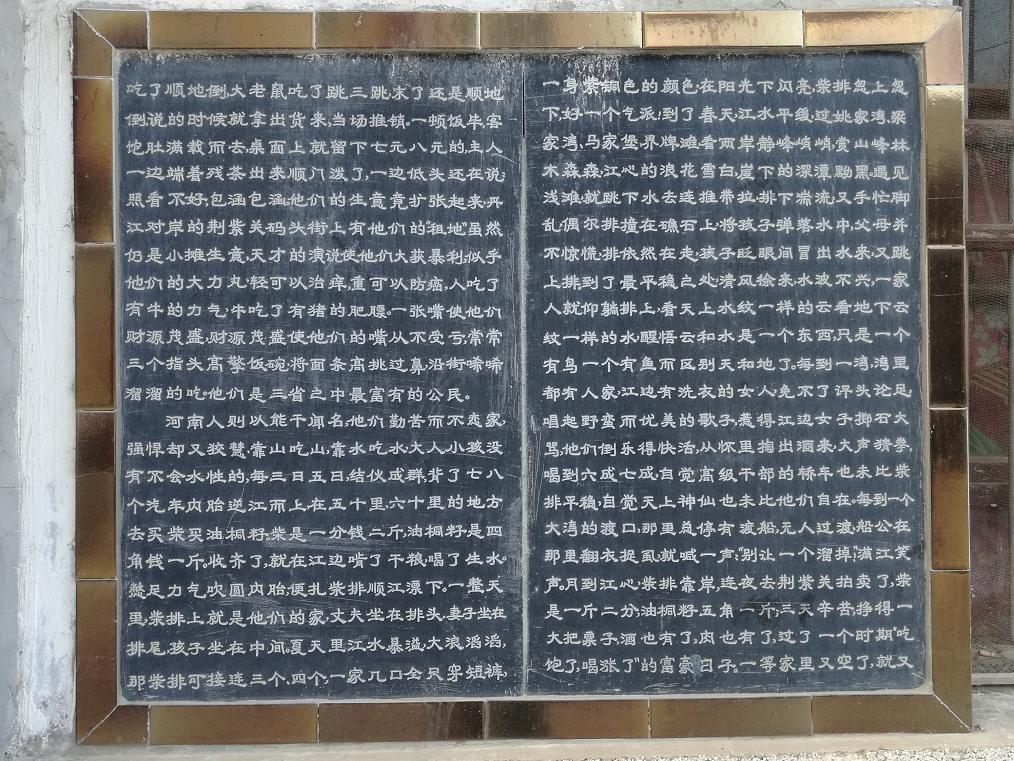 吃了顺地倒,大老鼠吃了跳三跳,末了还是顺地
倒,说的时候就拿出货来,当场推销,一顿饭毕,客
饱肚满载而去,桌面上就留下七元八元的,主人
一边端着残茶出来顺门泼了,一边低头还在说;
照看不好,包涵包涵,他们的生意竟扩张起来,丹
江对岸的荆紫关码头街上有他们的“租地”,虽然
仍是小摊生意,天才的演说使他们大获暴利,似乎
他们的大力丸,轻可以治痒,重可以防癌,人吃了
有牛的力气,牛吃了有猪的肥膘。一张嘴使他们
财源茂盛,财源茂盛使他们的嘴从不受亏,常常
三个指头高擎饭碗,将面条高挑过鼻沿街唏唏
溜溜的吃。他们是三省之中最富有的公民。
河南人则以能干闻名,他们勤苦而不恋家,
强悍却又狡慧,靠山吃山,靠水吃水,大人小孩没
有不会水性的,每三日五日,结伙成群,背了七八
个汽车内胎逆江而上,在五十里、六十里的地方
去买柴买油桐籽。柴是一分钱二斤,油桐籽是四
角钱一斤。收齐了,就在江边啃了干粮,喝了生水。
憋足力气吹圆内胎,便扎柴排顺江漂下。一整天
里,柴排上就是他们的家,丈夫坐在排头,妻子坐在
排尾,孩子坐在中间。夏天里江水暴溢,大浪滔滔,
那柴排可接连三个、四个,一家几口全只穿短裤,
一身紫铜色的颜色,在阳光下闪亮,柴排忽上忽
下,好一个气派,到了春天,江水平缓,过姚家湾、梁
家湾、马家堡、界牌滩,看两岸静峰峭峭,赏山峰林
木森森,江心的浪花雪白,崖下的深潭黝黑,遇见
浅滩,就跳下水去连推带拉,排下湍流,又手忙脚
乱,偶尔排撞在礁石上,将孩子弹落水中,父母并
不惊慌,排依然在走,孩子眨眼间冒出水来,又跳
上排,到了最平稳之处,清风徐来,水波不兴,一家
人就仰躺排上,看天上水纹一样的云,看地下云
纹一样的水,醒悟云和水是一个东西,只是一个
有鸟一个有鱼而区别天和地了。每到一湾,湾里
都有人家,江边有洗衣的女人,免不了评头论足,
唱起野蛮而优美的歌子,惹得江边女子掷石大
骂,他们倒乐得快活,从怀里掏出酒来,大声猜拳,
喝到六成七成,自觉高级干部的轿车也未比柴
排平稳,自觉天上神仙也未比他们自在,每到一个
大湾的渡口,那里总停有渡船,无人过渡,船公在
那里翻衣捉虱,就喊一声:“别让一个溜掉!”满江笑
声。月到江心,柴排靠岸,连夜去荆紫关拍卖了,柴
是一斤二分;油桐籽五角一斤;三天辛苦,挣得一
大把票子,酒也有了,肉也有了,过了一个时期“吃
饱了,喝涨了”的富豪日子。一等家里又空了,就又